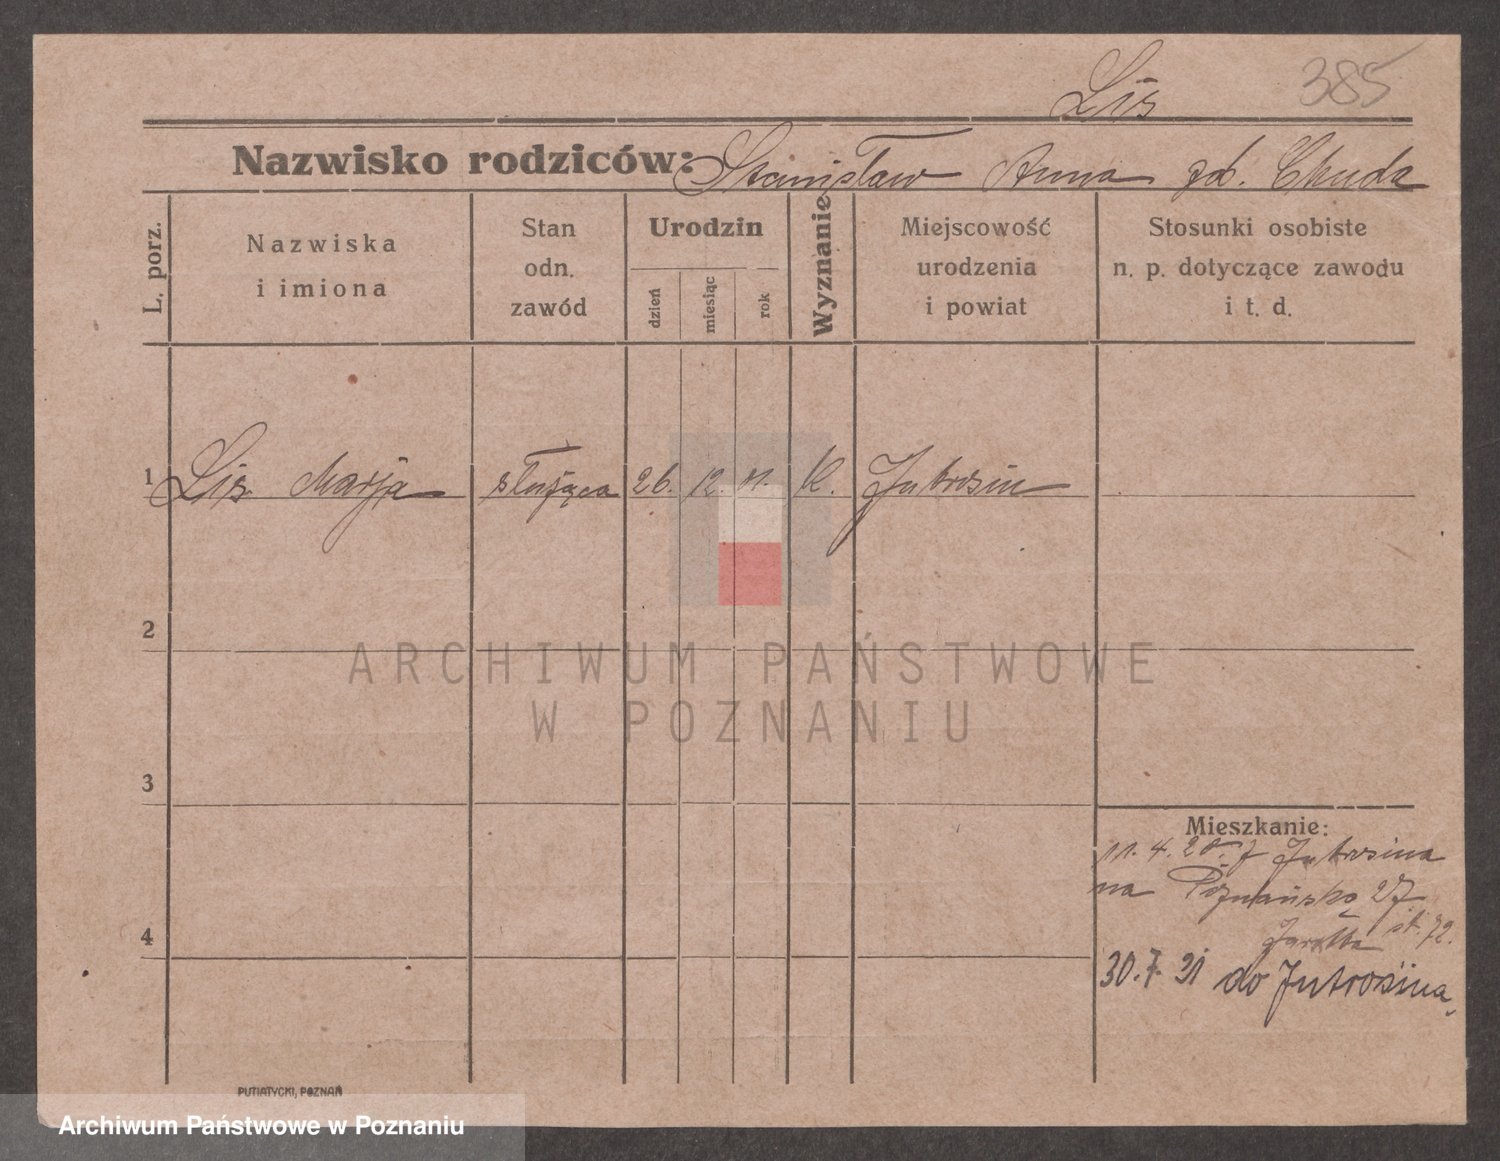 Lis 385
Nazwisko rodziców: Stanisław Anna zd. Chuda
L. porz.
Nazwiska
i imiona
Stan
odn.
zawód
Urodzin
dzień
miesiąc
rok
Wyznanie
Miejscowość
urodzenia
i powiat
Stosunki osobiste
n. p. dotyczące zawodu
i t. d.
1 Lis Marja służąca 26. 12. 11. K. Jutrosin
2
ARCHIWUM PAŃSTWOWE
W POZNANIU
3
Mieszkanie:
11. 4. z Jutrosina
na Poznańską 27
4
30. 7. 31 do Jutrosina
PUTIATYCKI, POZNAŃ
Archiwum Państwowe w Poznaniu